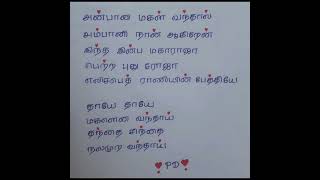 அன்பான மகள் வந்தால்
அம்பானி நான் ஆகிறேன்
இந்த இன்ப மகாராஜா
பெற்ற புது ரோஜா
எலிசபெத் ராணியின் பேத்தியே!
தாயே தாயே
மகளென வந்தாய்
தந்தை சிந்தை
நலமுற வந்தாய்!
PD